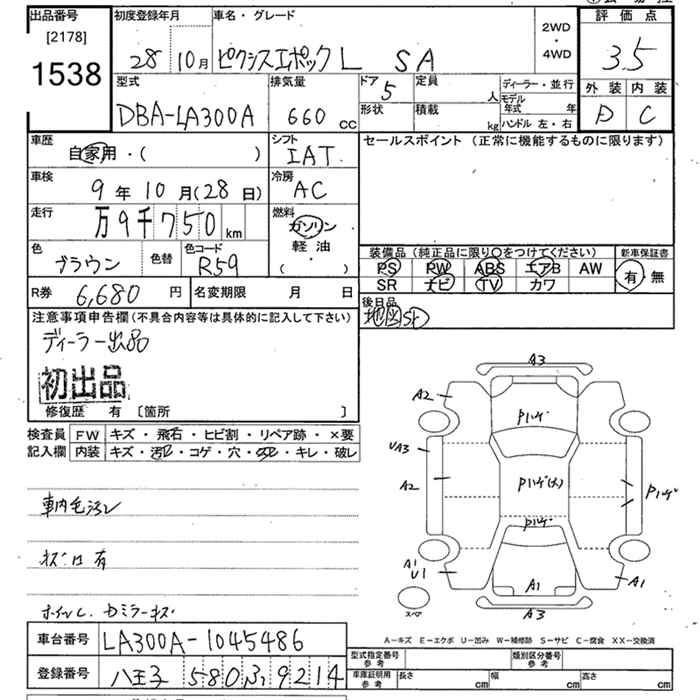 出品番号
[2178]
1538
初度登録年月
28 10月
車名・グレード
ピクシスエポック L SA
2WD
・
4WD
評価点
3.5
外装 内装
D C
型式
DBA-LA300A
排気量
660 cc
ドア
5
定員
人
形状
積載
kg
ディーラー・並行
モデル年式 年
ハンドル 左・右
車歴
自家用・( )
シフト
IAT
セールスポイント (正常に機能するものに限ります)
車検
9年10月(28日)
冷房
AC
走行
万9千750km
燃料
ガソリン
軽油
( )
色
ブラウン
色替
色コード
R59
装備品(純正品に限り○をつけてください)
PS PW ABS エアB AW
SR ナビ TV カワ
新車保証書
有 無
R券 6,680円
名変期限 月 日
後日品
注意事項申告欄(不具合内容等は具体的に記入して下さい)
ディーラー出品
初出品
修復歴 有 [箇所 ]
検査員記入欄
FW キズ・飛石・ヒビ割・リペア跡・×要
内装 キズ・汚レ・コゲ・穴・・キレ・破レ
車内毛汚レ
有
A3
A2
Pハゲ
UA3
A2
Pハゲ(大)
Pハゲ
Pハゲ
A1
U1
A1
A1
A3
スペア
A-キズ E-エクボ U-凹み W-補修跡 S-サビ C-腐食 XX-交換済
車台番号 LA300A-1045486
登録番号 八王子 580 ふ 9214
型式指定番号
参考
類別区分番号
参考
車庫証明用
参考
長さ cm
幅 cm
高さ cm